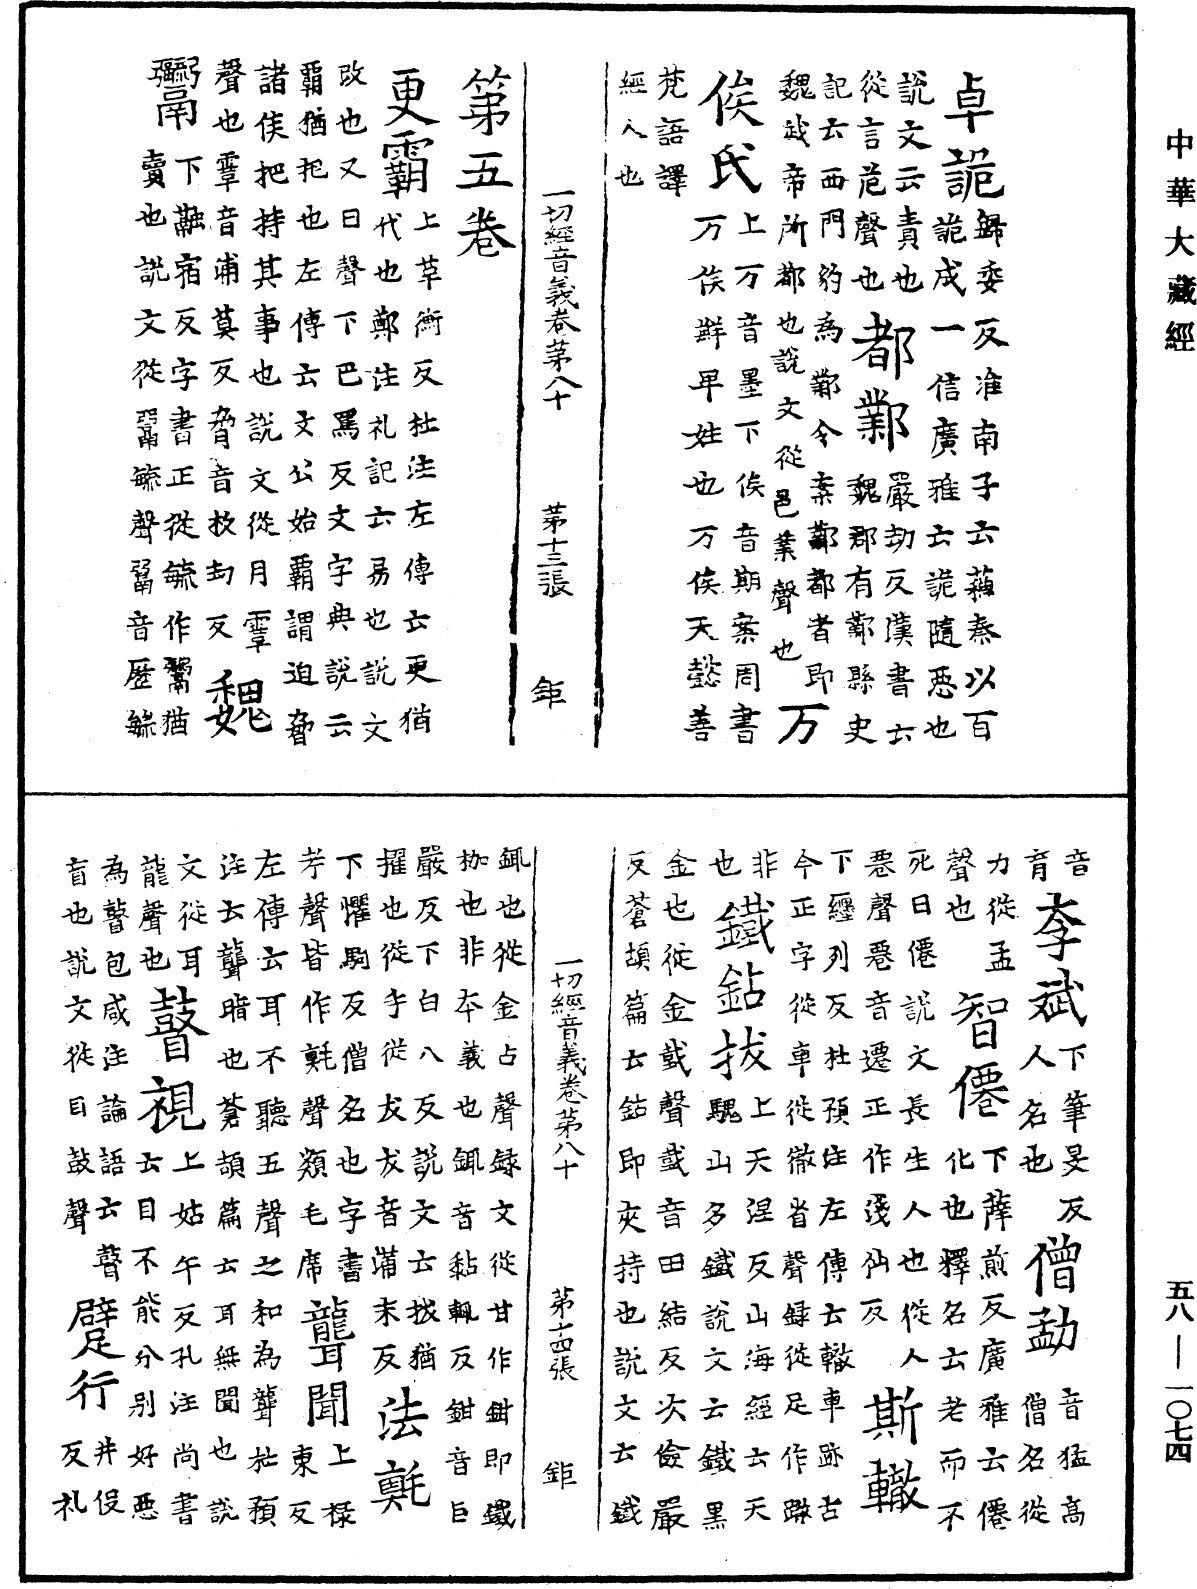 中華大藏經
卓詭歸委反淮南子云蘓秦以百
詭成一信廣雅云詭隨惡也
說文云責也
從言危聲也
都鄴嚴劫反漢書云
魏郡有鄴縣史
記云西門豹為鄴令案鄴都者即
魏武帝所都也說文從邑業聲也
万俟氏上万音墨下俟音期案周書
万俟鮮卑姓也万俟天懿善
梵語譯
經人也
一切經音義卷第八十 第十三張 鉅
第五卷
更霸上革衡反杜注左傳云更猶
代也鄭注礼記云易也說文
改也又曰聲下巴罵反文字典說云
霸猶把也左傳云文公始霸謂迫脅
諸侯把持其事也說文從月䨣
聲也䨣音浦莫反脅音杴刧反
魏
鬻下融宿反字書正從毓作鬻猶
賣也說文從䰜毓聲䰜音歷毓
音
育
李斌下筆旻反
人名也
僧勐音猛高
僧名從
力從孟
聲也
智僊下薛煎反廣雅云僊
化也釋名云老而不
死曰僊說文長生人也從人
䙴聲䙴音遷正作㣤仙反
斯轍
下纏列反杜預注左傳云轍車跡古
今正字從車從徹省聲録從足作蹤
非上天涅反山海經云天
也
鐵鉆拔騩山多鐵說文云鐵黑
金也從金䥫聲䥫音田結反次儉嚴
反蒼頡篇云鉆即夾持也說文云鐵
一切經音義卷第八十 第十四張 鉅
鉔也從金占聲録文從甘作鉗即鐵
枷也非夲義也鉔音黏輒反鉗音巨
嚴反下白八反說文云拔猶
擢也從手從犮犮音蒲末反
法㲘
下懼駒反僧名也字書
芧聲皆作㲘聲纇毛席
聾聞上祿
東反
左傳云耳不聽五聲之和為聾杜預
注云聾暗也蒼頡篇云耳無聞也說
文從耳
龍聲也
瞽視上姑午反孔注尚書
云目不能分別好惡
為瞽包咸注論語云瞽
盲也說文從目鼓聲
躄行并役
反礼
五八—一〇七四